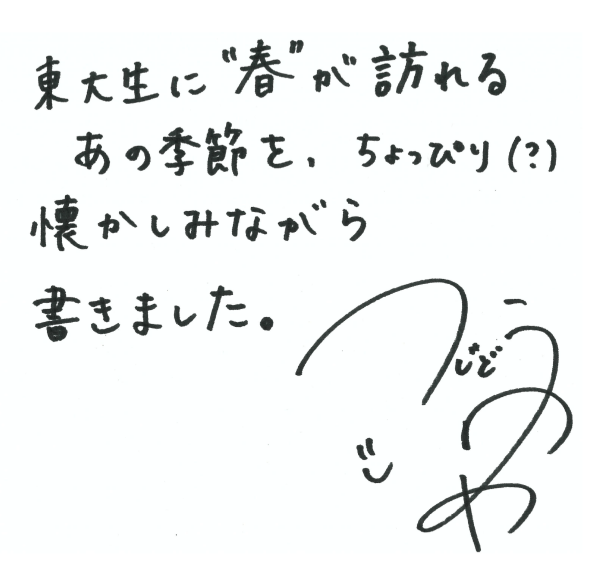 東大生に"春"が訪れる
あの季節を、ちょっぴり(?)
懐かしみながら
書きました。